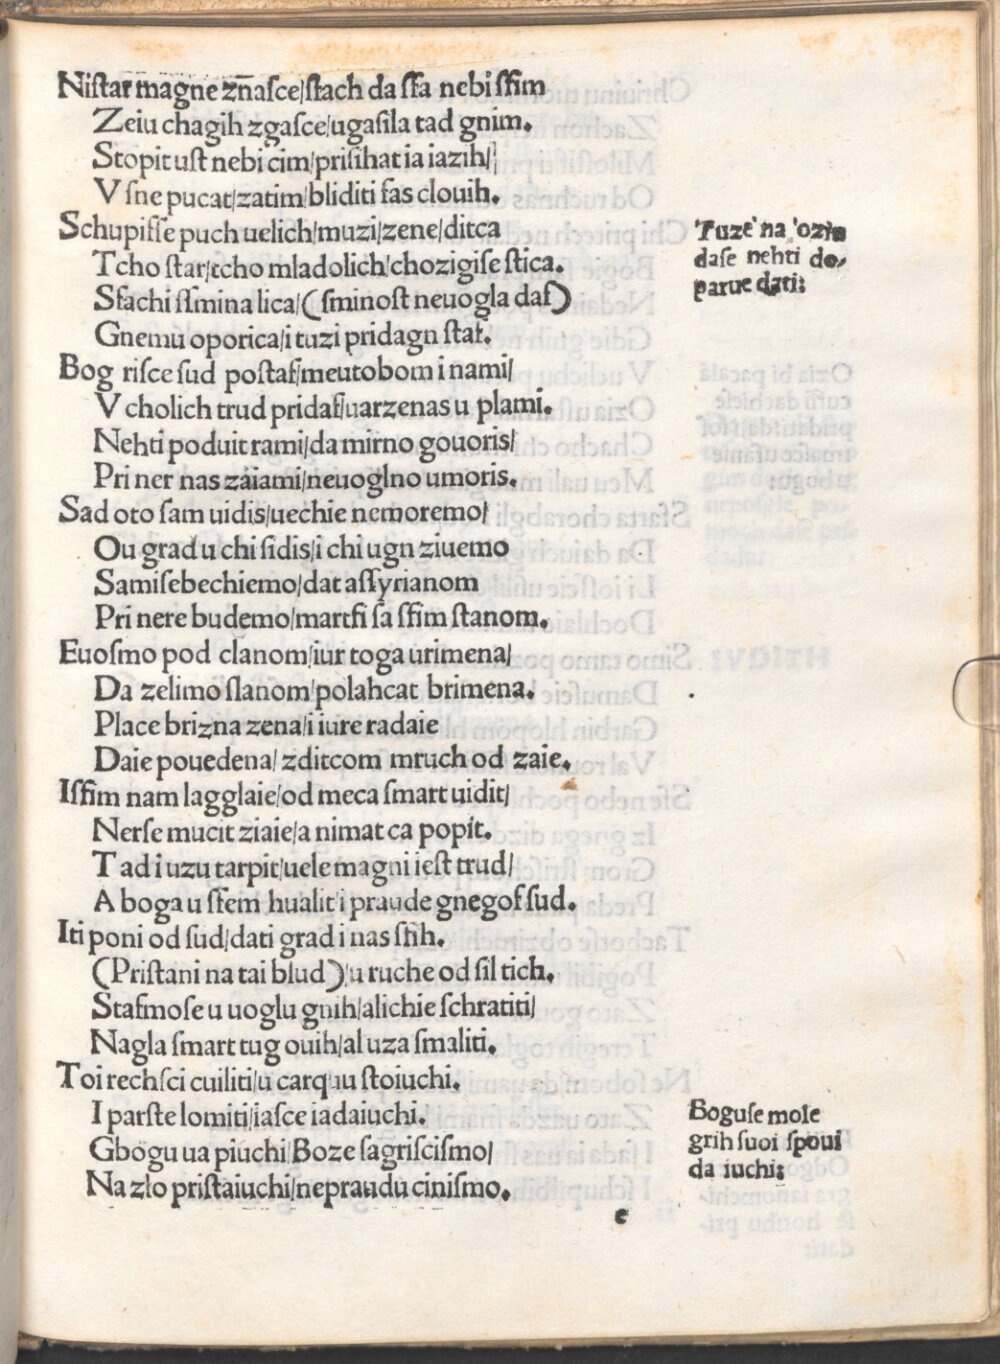 Niſtar magne zn̄aſce/ſtach da ſſa nebi ſſim
Zeiu chagih zgaſce/ugaſila tad gnim.
Stopit uſt nebi cim/priſihat ia iazih/
V ſne pucat/zatim/bliditi ſas clouih.
Schupiſſe puch uelich/muzi/zene/ditca
Tcho ſtar/tcho mladolich/chozigiſe ſtica.
Sſachi ſſmina lica/(ſminoſt neuogla daſ)
Gnemu oporica/i tuzi pridagn ſtaſ.
Bog riſce ſud poſtaſ/meutobom i nami/
V cholich trud pridaſ/uarzenas u plami.
Nehti poduit rami/da mirno gouoris/
Pri ner nas zaiami/neuoglno umoris.
Sad oto ſam uidis/uechie nemoremo/
Ou grad u chi ſidis/i chi ugn ziuemo
Samiſebechiemo/dat aſſyrianom
Pri nere budemo/martſi ſa ſſim ſtanom.
Euoſmo pod clanom/iur toga urimena/
Da zelimo ſlanom/polahcat brimena.
Place brizna zena/i iure radaie
Daie pouedena/ zditcom mruch od zaie.
Iſſim nam lagglaie/od meca ſmart uidit/
Nerſe mucit ziaie/a nimat ca popit.
T ad i uzu tarpit/uele magni ieſt trud/
A boga u ſſem hualit/i praude gnegoſ ſud.
Iti poni od ſud/dati grad i nas ſſih.
(Priſtani na tai blud)/u ruche od ſil tich.
Staſmoſe u uoglu gnih/alichie ſchratiti/
Nagla ſmart tug ouih/al uza ſmaliti.
Toi rechſci cuiliti/u carquu ſtoiuchi.
I parſte lomiti/iaſce iadaiuchi.
Gbogu ua piuchi/Boze ſagriſciſmo/
Na zlo priſtaiuchi/nepraudu ciniſmo.
Tuze na ozia
daſe nehti do-
parue dati:
Boguſe mole
grih ſuoi ſpoui
da iuchi:
e